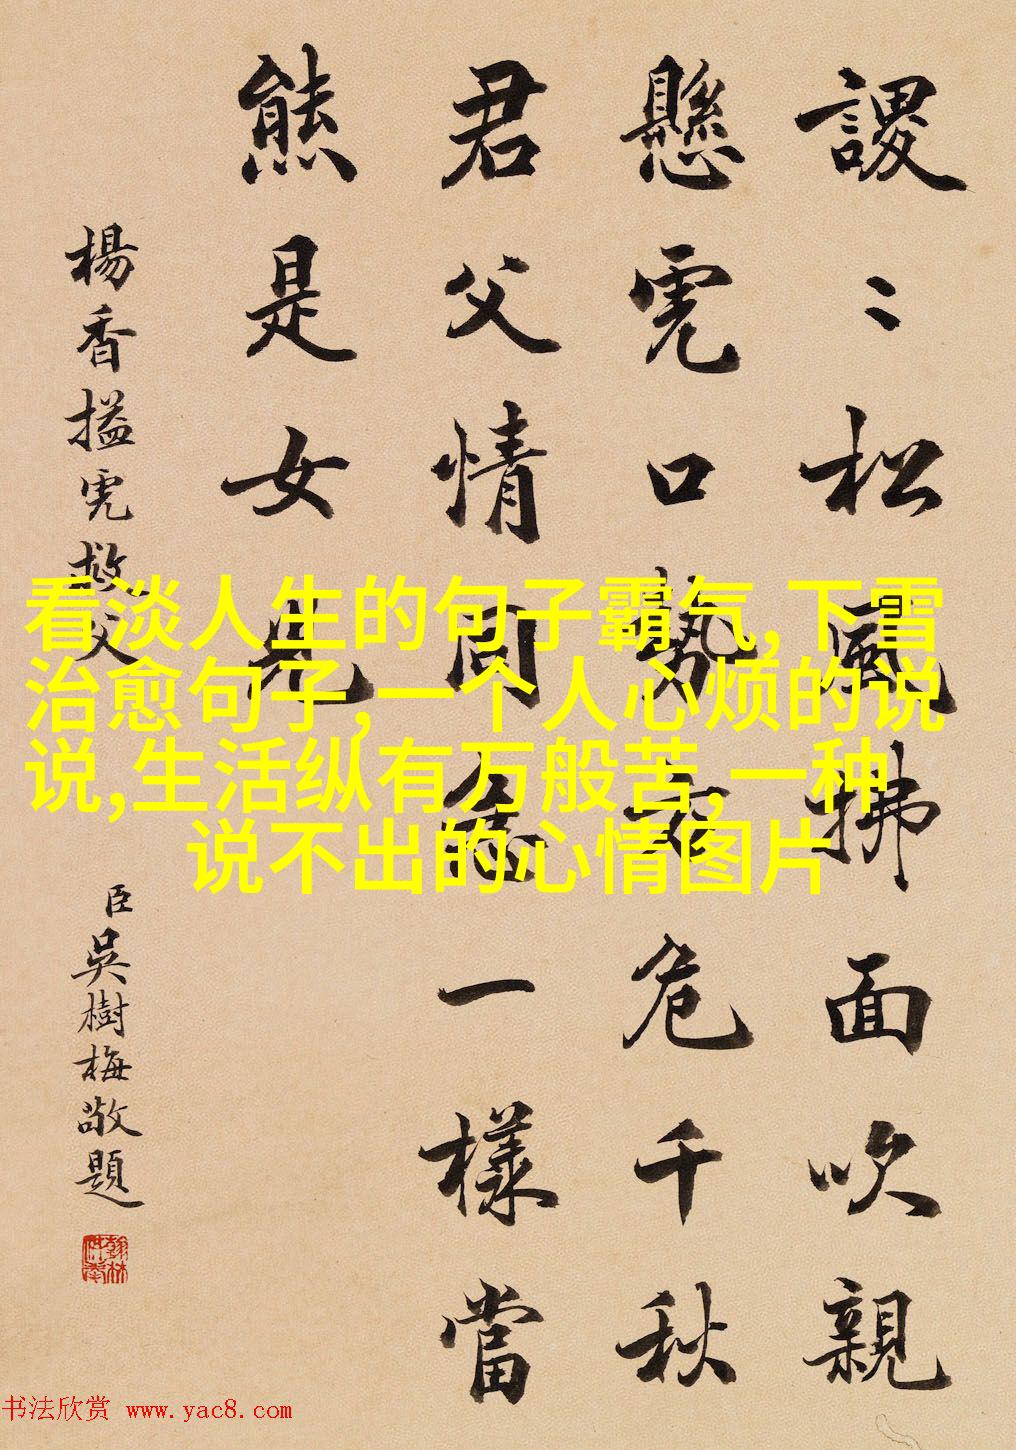 謖〻松風拂面吹親
懸虎口勢危千秋
君父情同一樣當
熊是女兒
楊香搤虎救父
臣吳樹梅敬題
看淡人生的句子霸气,下雪
治愈句子,一个人心烦的说
说,生活纵有万般苦,一种
说不出的心情图片
书法欣赏 www.yac8.com